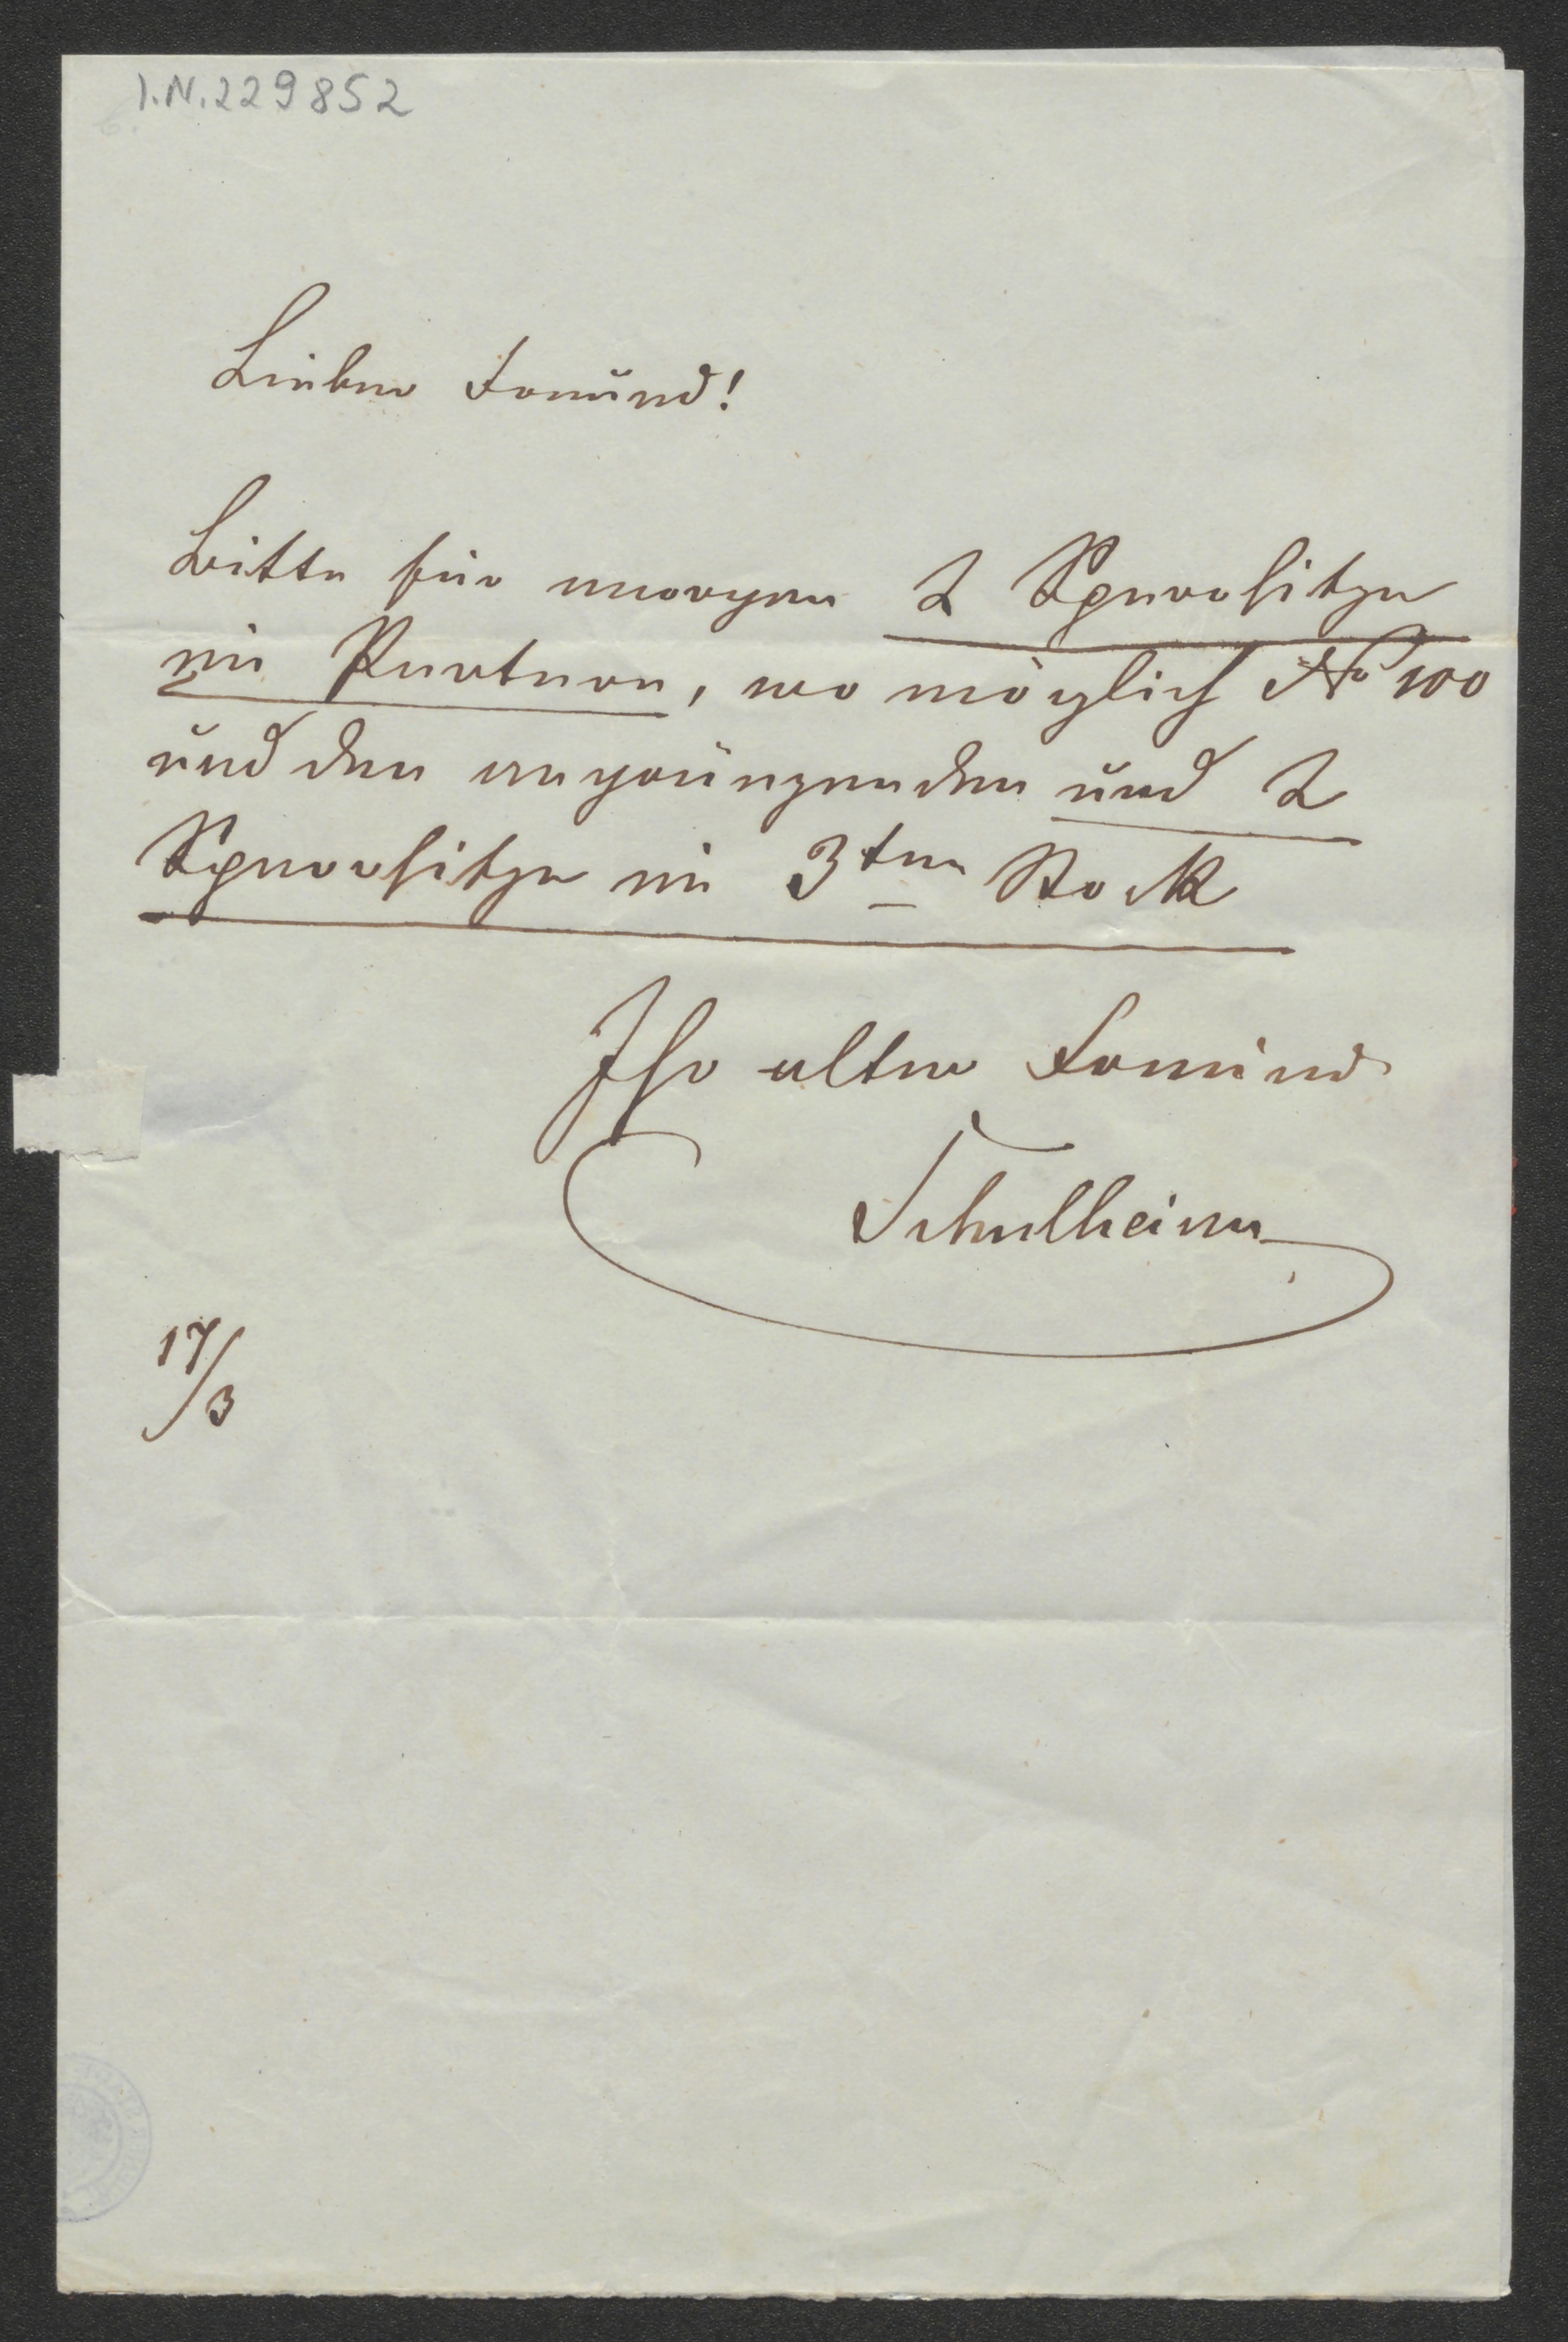 I.N. 229852
Lieber Freund!
Bitte für morgen 2 Sperrsitze
im Parterre, wo möglich No 100
und den angränzenden und 2
Sperrsitze im 3ten Stock
Ihr alter Freund
Schulheim
17/3